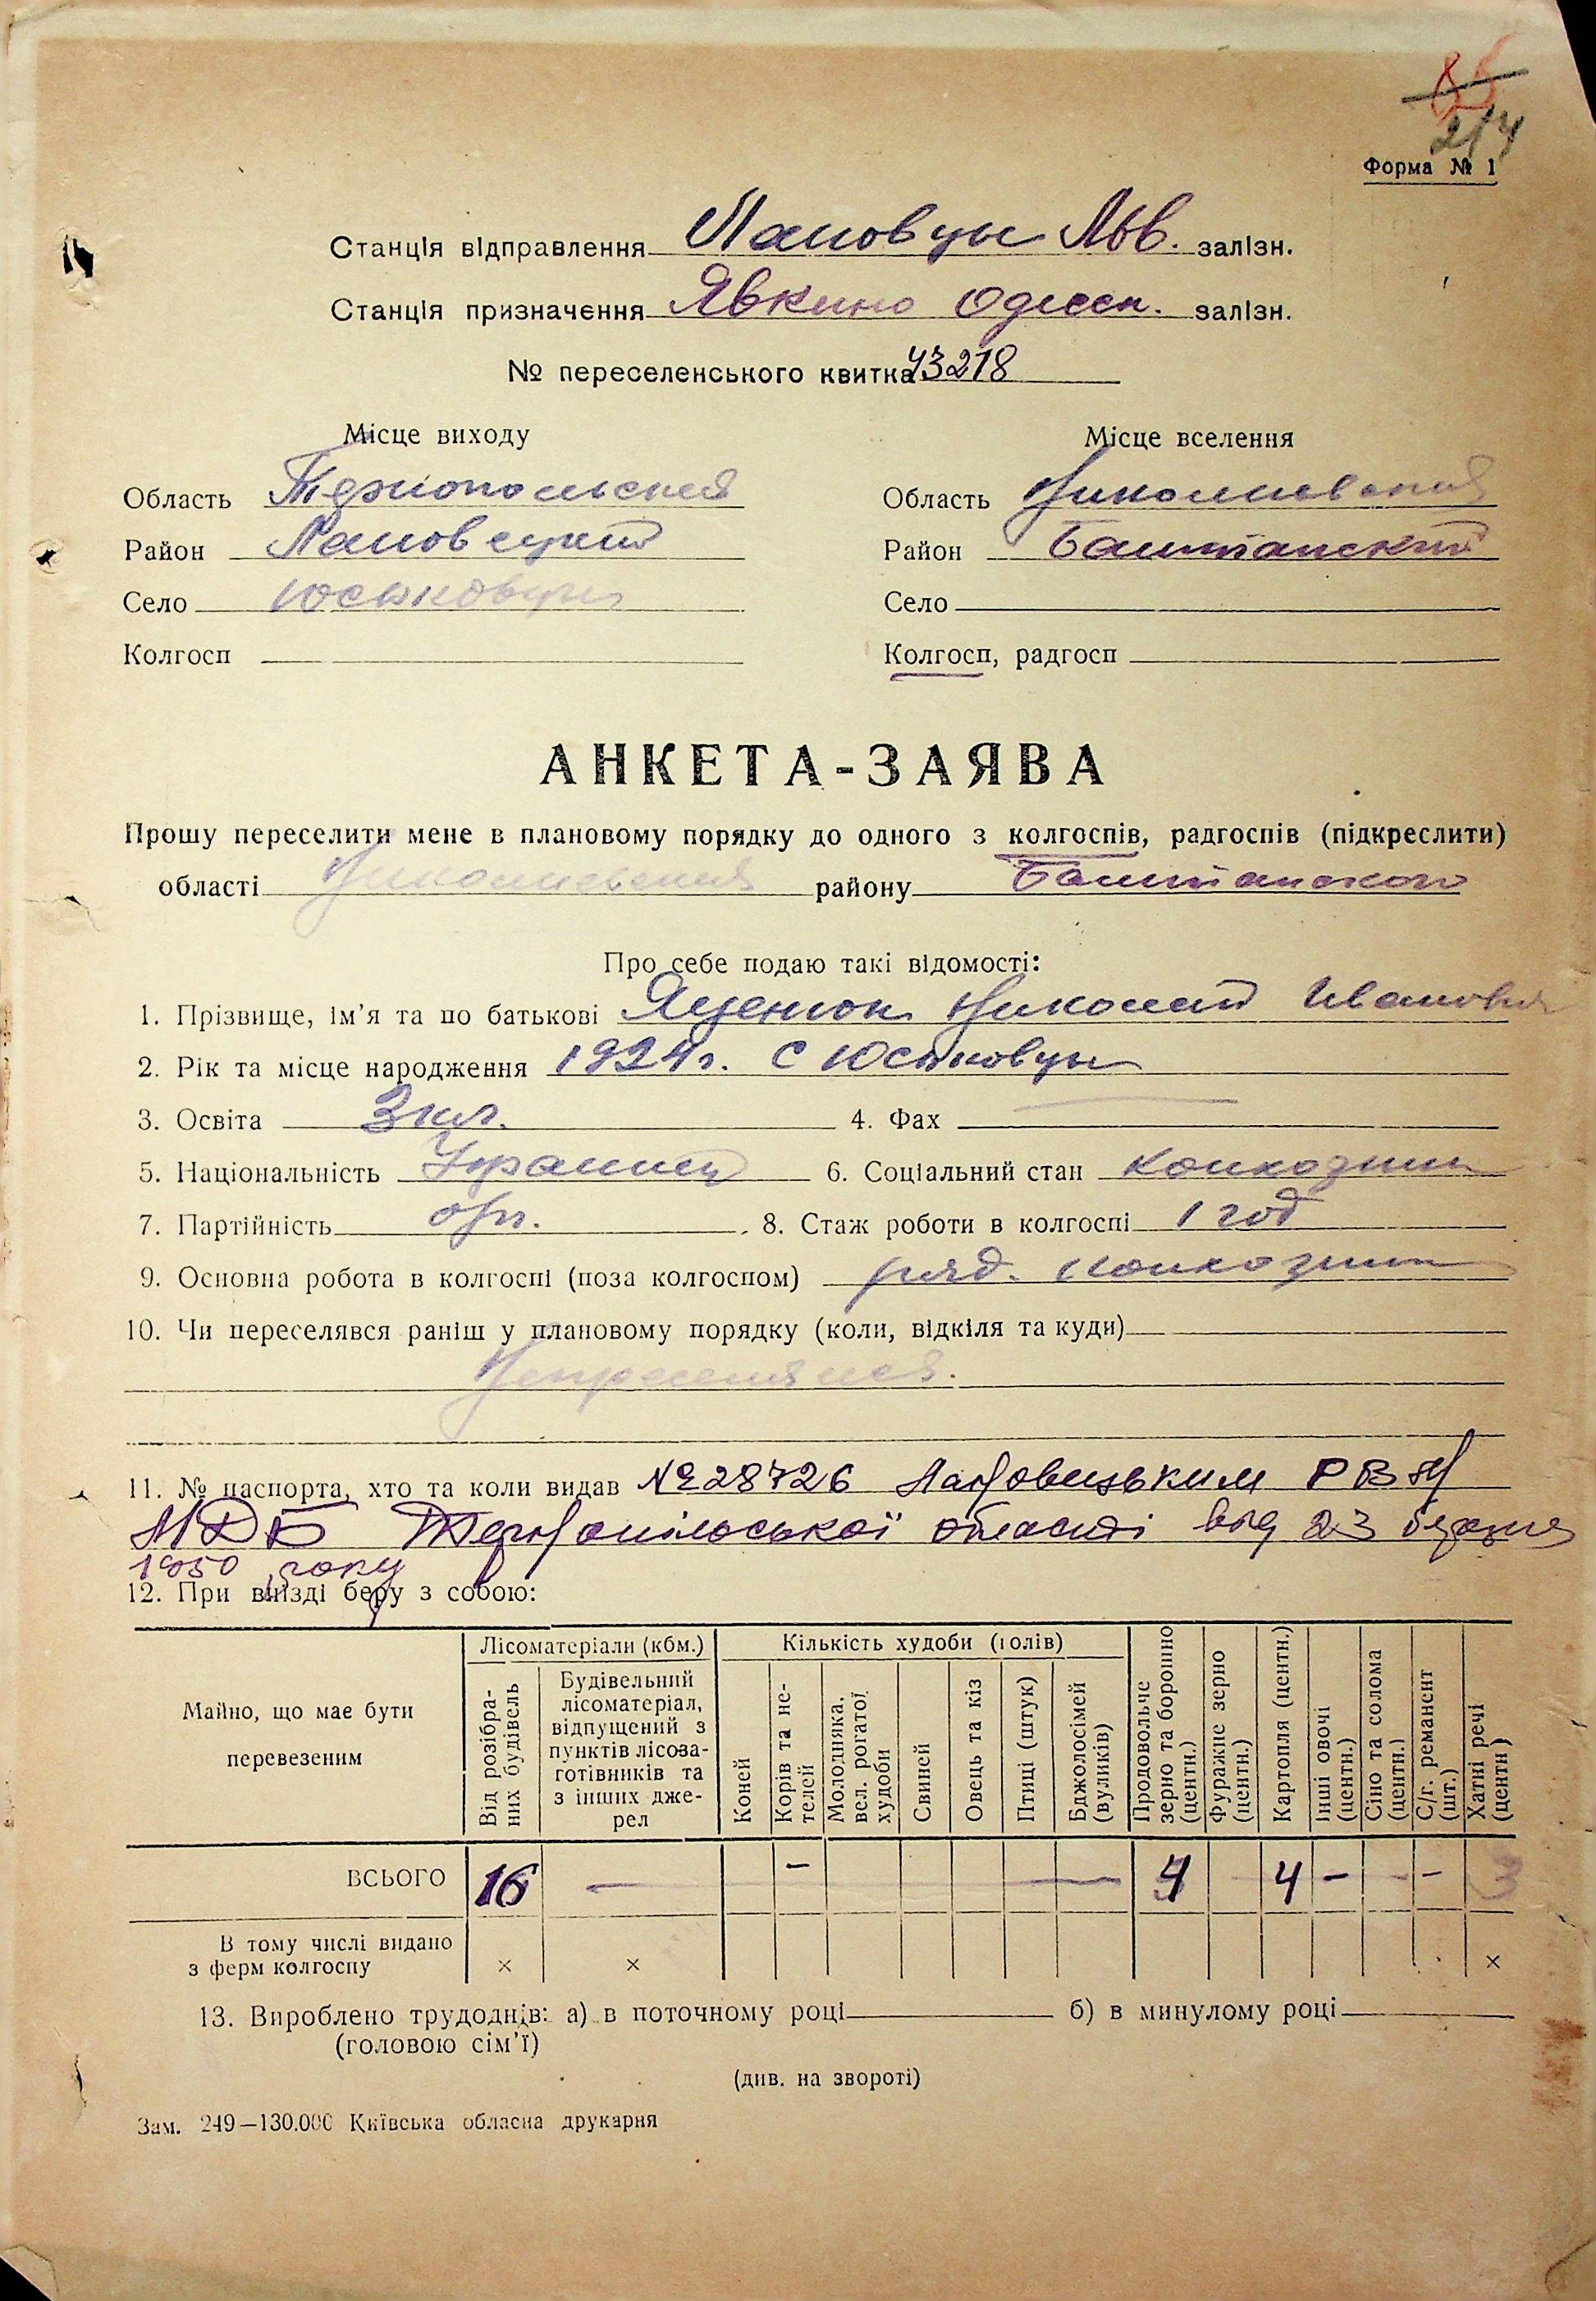 85
214
Форма № 1
Станція відправлення Лановцы Льв. залізн.
Станція призначення Явкино Одесск. залізн.
№ переселенського квитка 43218
Місце виходу Місце вселення
Область Тернопольская Область Николаевская
Район Лановецкий Район Баштанский
Село Юськовцы Село
Колгосп Колгосп, радгосп
АНКЕТА-ЗАЯВА
Прошу переселити мене в плановому порядку до одного з колгоспів, радгоспів (підкреслити)
області Николаевская району Баштанского
Про себе подаю такі відомості:
1. Прізвище, ім'я та по батькові Яценюк Николай Иванович
2. Рік та місце народження 1924г. с Юськовцы
3. Освіта 3 кл. 4. Фах
5. Національність Украинец 6. Соціальний стан колхозник
7. Партійність б/п. 8. Стаж роботи в колгоспі 1 год
9. Основна робота в колгоспі (поза колгоспом) ряд. колхозник
10. Чи переселявся раніш у плановому порядку (коли, відкіля та куди)
Непреселялся.
11. № паспорта, хто та коли видав №28726 Лановецьким РВ
МДБ Тернопільської області від 23
1950 року
12. При виїзді беру з собою:
Майно, що має бути перевезеним
Лісоматеріали (кбм.)
Від розібраних будівель
Будівельний лісоматеріал, відпущений з пунктів лісозаготівників та з інших джерел
Кількість худоби (голів)
Коней
Корів та нетелей
Молодняка. вел. рогатої худоби
Свиней
Овець та кіз
Птиці (штук)
Бджолосімей (вуликів)
Продовольче зерно та борошно (центн.)
Фуражне зерно (центн.)
Картопля (центн.)
Інші овочі (центн.)
Сіно та солома (центн.)
С/г. реманент (шт.)
Хатні речі (центн)
ВСЬОГО 16 — – 4 4 – – – 3
В тому числі видано
з ферм колгоспу × × ×
13. Вироблено трудоднів: а) в поточному році б) в минулому році
(головою сім'ї)
(див. на звороті)
Зам. 249—130.000 Київська обласна друкарня